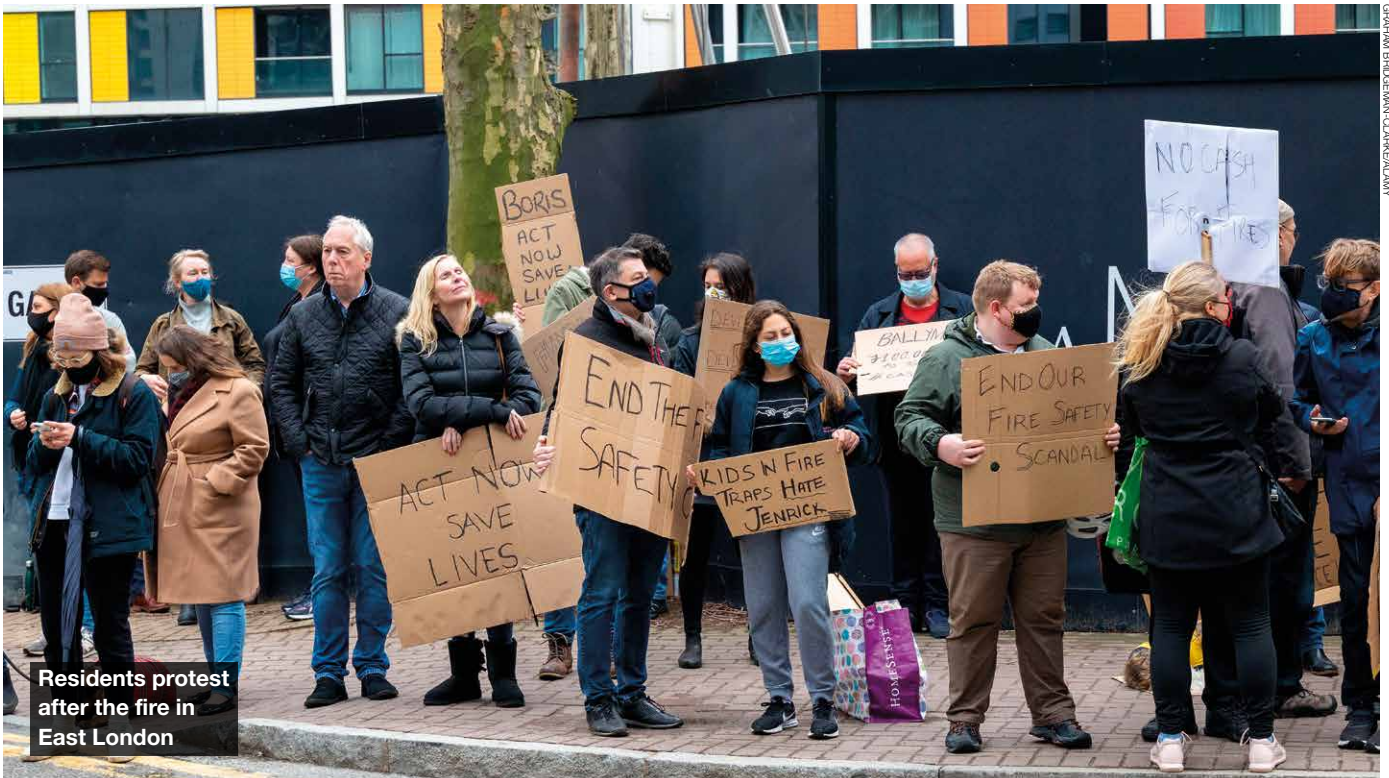 GRAHAM BRIDGEMAN-CLARKE/ALAMY
GA
BORIS
ACT
NOW
SAVE
NO CASH
FOR FIRES
BALLYM
END THE F
SAFETY
ACT NOW
SAVE
LIVES
KIDS IN FIRE
TRAPS HATE
JENRICK
END OUR
FIRE SAFETY
SCANDAL
HOMESENSE
Residents protest
after the fire in
East London